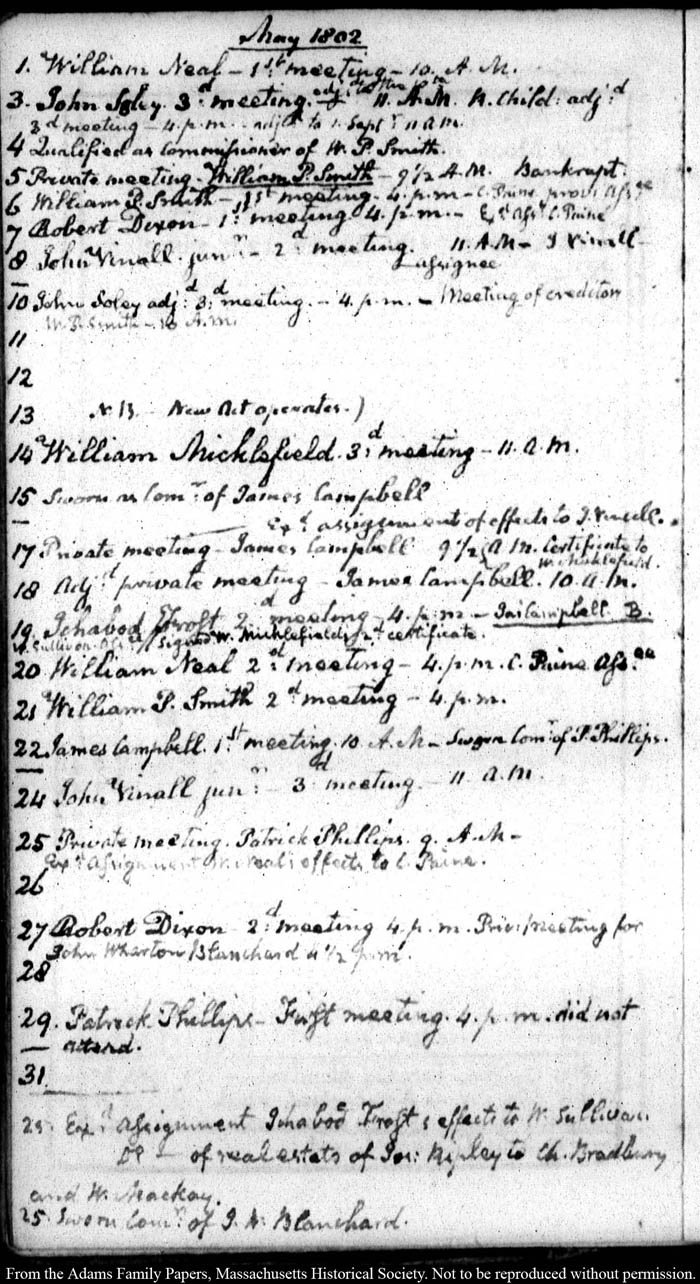 May 1802
1. William Neal – 1st meeting – 10. A.M.
3. John Soley. 3d meeting. 11. A.M. N. Child: adj:d
3d meeting – 4. p.m. – adj:d to 1. Sept:r 11 a.m.
4 Qualified as Commissioner of W. P. Smith.
5 Private meeting – William P. Smith – 9 1/2 A.M. Bankrupt.
6 William P. Smith – 1st meeting – 4. p.m – C. Paine provi: Ass:ee
7 Robert Dixon – 1st meeting 4. p.m. – Ex:d Ass:t C. Paine
8 John Vinall jun:r – 2d meeting. 11. A.M – J Vinall
– assignee
10 John Soley adj:d 3:d meeting. – 4. p.m. – Meeting of creditors
W. P. Smith – 10 A.M.
11
12
13 N.B. New Act operates.)
14 William Micklefield. 3:d meeting – 11. a.m.
15 Sworn as Com:r of James Campbell
– Ex:d assignment of effects to J. Vinall.
17 Private meeting – James Campbell 9 1/2 A.M. Certificate to
W. Micklefield.
18 Adj:d private meeting – James Campbell. 10. a.m.
19. Ichabod Frost 2d meeting – 4. p.m – Jas: Campbell B.
W. Sullivan Signed W. Micklefield's certificate.
20 William Neal 2:d meeting – 4. p.m. C. Paine Ass:ee
21 William P. Smith 2d meeting – 4. p.m.
22 James Campbell. 1:st meeting. 10 A.M – Sworn Com:r of P. Phillips.
24 John Vinall jun:r – 3d meeting – 11. a.m.
25 Private meeting. Patrick Phillips. 9. A.M –
Ex:d Assignment W. Neal's effects to C. Paine.
26
27 Robert Dixon 2:d meeting 4. p.m. Priv: Meeting for
John Wharton Blanchard 4 1/2 p.m.
28
29. Patrick Phillips – First meeting. 4. p.m. did not
– attend.
31.
25: Ex:d Assignment Ichabod Frost's effects to W. Sullivan.
Do – of real estate of Jos: Ripley to Ch. Bradbury
and W. Mackay.
25. Sworn Com:r of J. W. Blanchard.
From the Adams Family Papers, Massachusetts Historical Society. Not to be reproduced without permission.